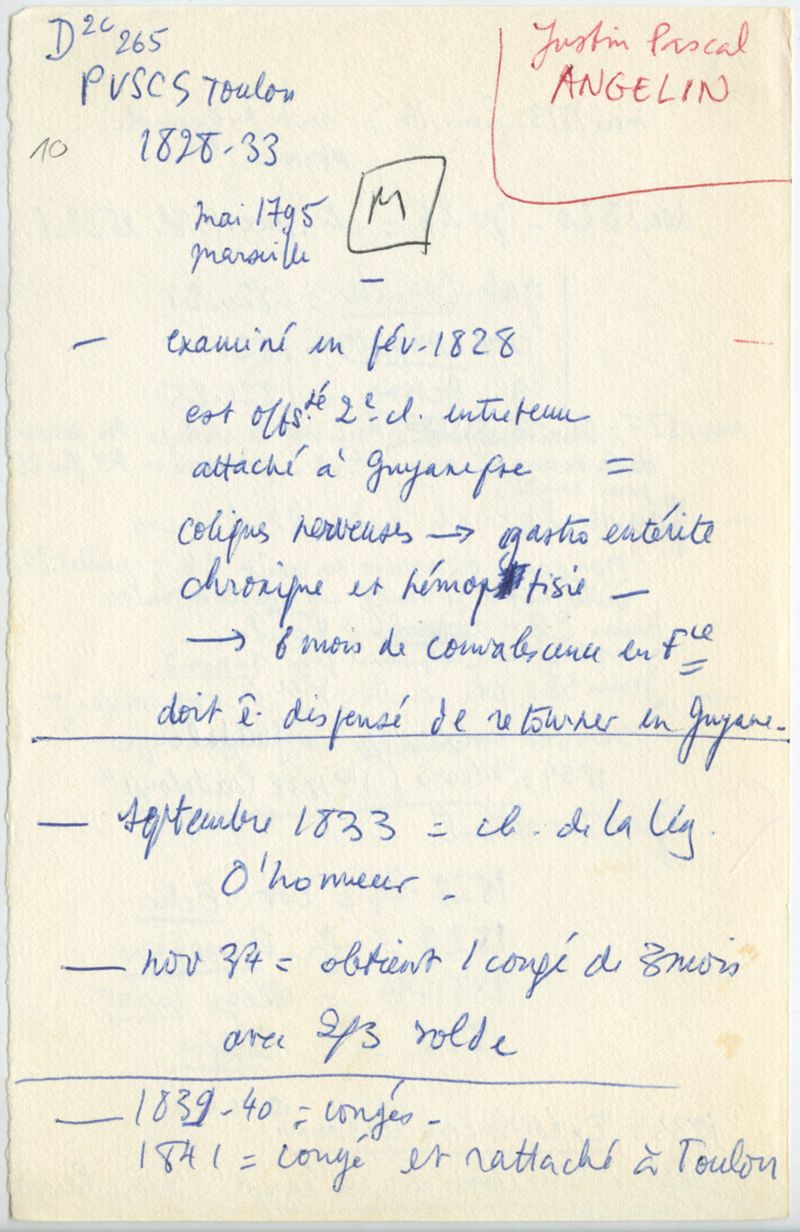 D2c 265
PVSCS Toulon
10 1828-33
Justin Pascal
ANGELIN
M
mai 1795
marseille
—
— examiné en fév. 1828
est offs. té 2e cl. entretenu
attaché à Guyane fse =
coliques nerveuses → gastro entérite
chronique et hémoptisie —
→ 6 mois de convalescence en Fce
doit ê. dispensé de retourner en Guyane.
— septembre 1833 = ch. de la Lég.
d'honneur -
— nov 37 = obtient 1 congé de 3 mois
avec 2/3 solde
— 1839-40 = congés -
1841 = congé et rattaché à Toulon